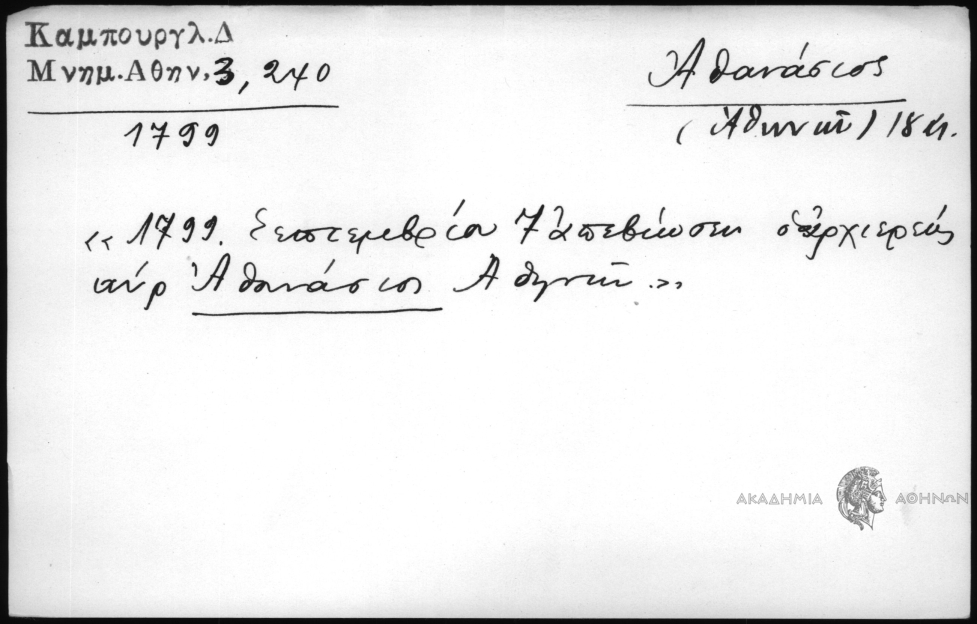 Καμπουργλ.Δ
Μνημ.Αθην,3, 240
1799
Ἀθανάσιος
(Ἀθηνῶν) 18 αι.
« 1799. Σεπτεμβρίου 7 ἀπεβίωσεν ὁ ἀρχιερεύς
κύρ Ἀθανάσιος Ἀθηνῶν »
ΑΚΑΔΗΜΙΑ ΑΘΗΝΩΝ